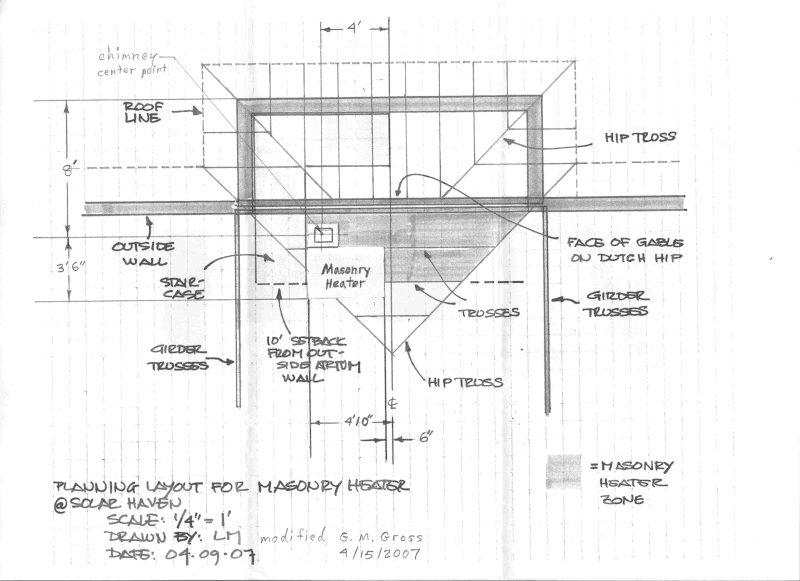 4'
chimney
center point
ROOF
LINE
HIP TRUSS
8'
OUTSIDE
WALL
FACE OF GABLE
ON DUTCH HIP
3'6"
STAIR-
CASE
Masonry
Heater
TRUSSES
GIRDER
TRUSSES
GIRDER
TRUSSES
10' SETBACK
FROM OUT-
SIDE ATRIUM
WALL
HIP TRUSS
℄
4'10"
6"
= MASONRY
HEATER
ZONE
PLANNING LAYOUT FOR MASONRY HEATER
@ SOLAR HAVEN
SCALE: 1/4" = 1'
DRAWN BY: LM modified G. M. Gross
DATE: 04.09.07 4/15/2007